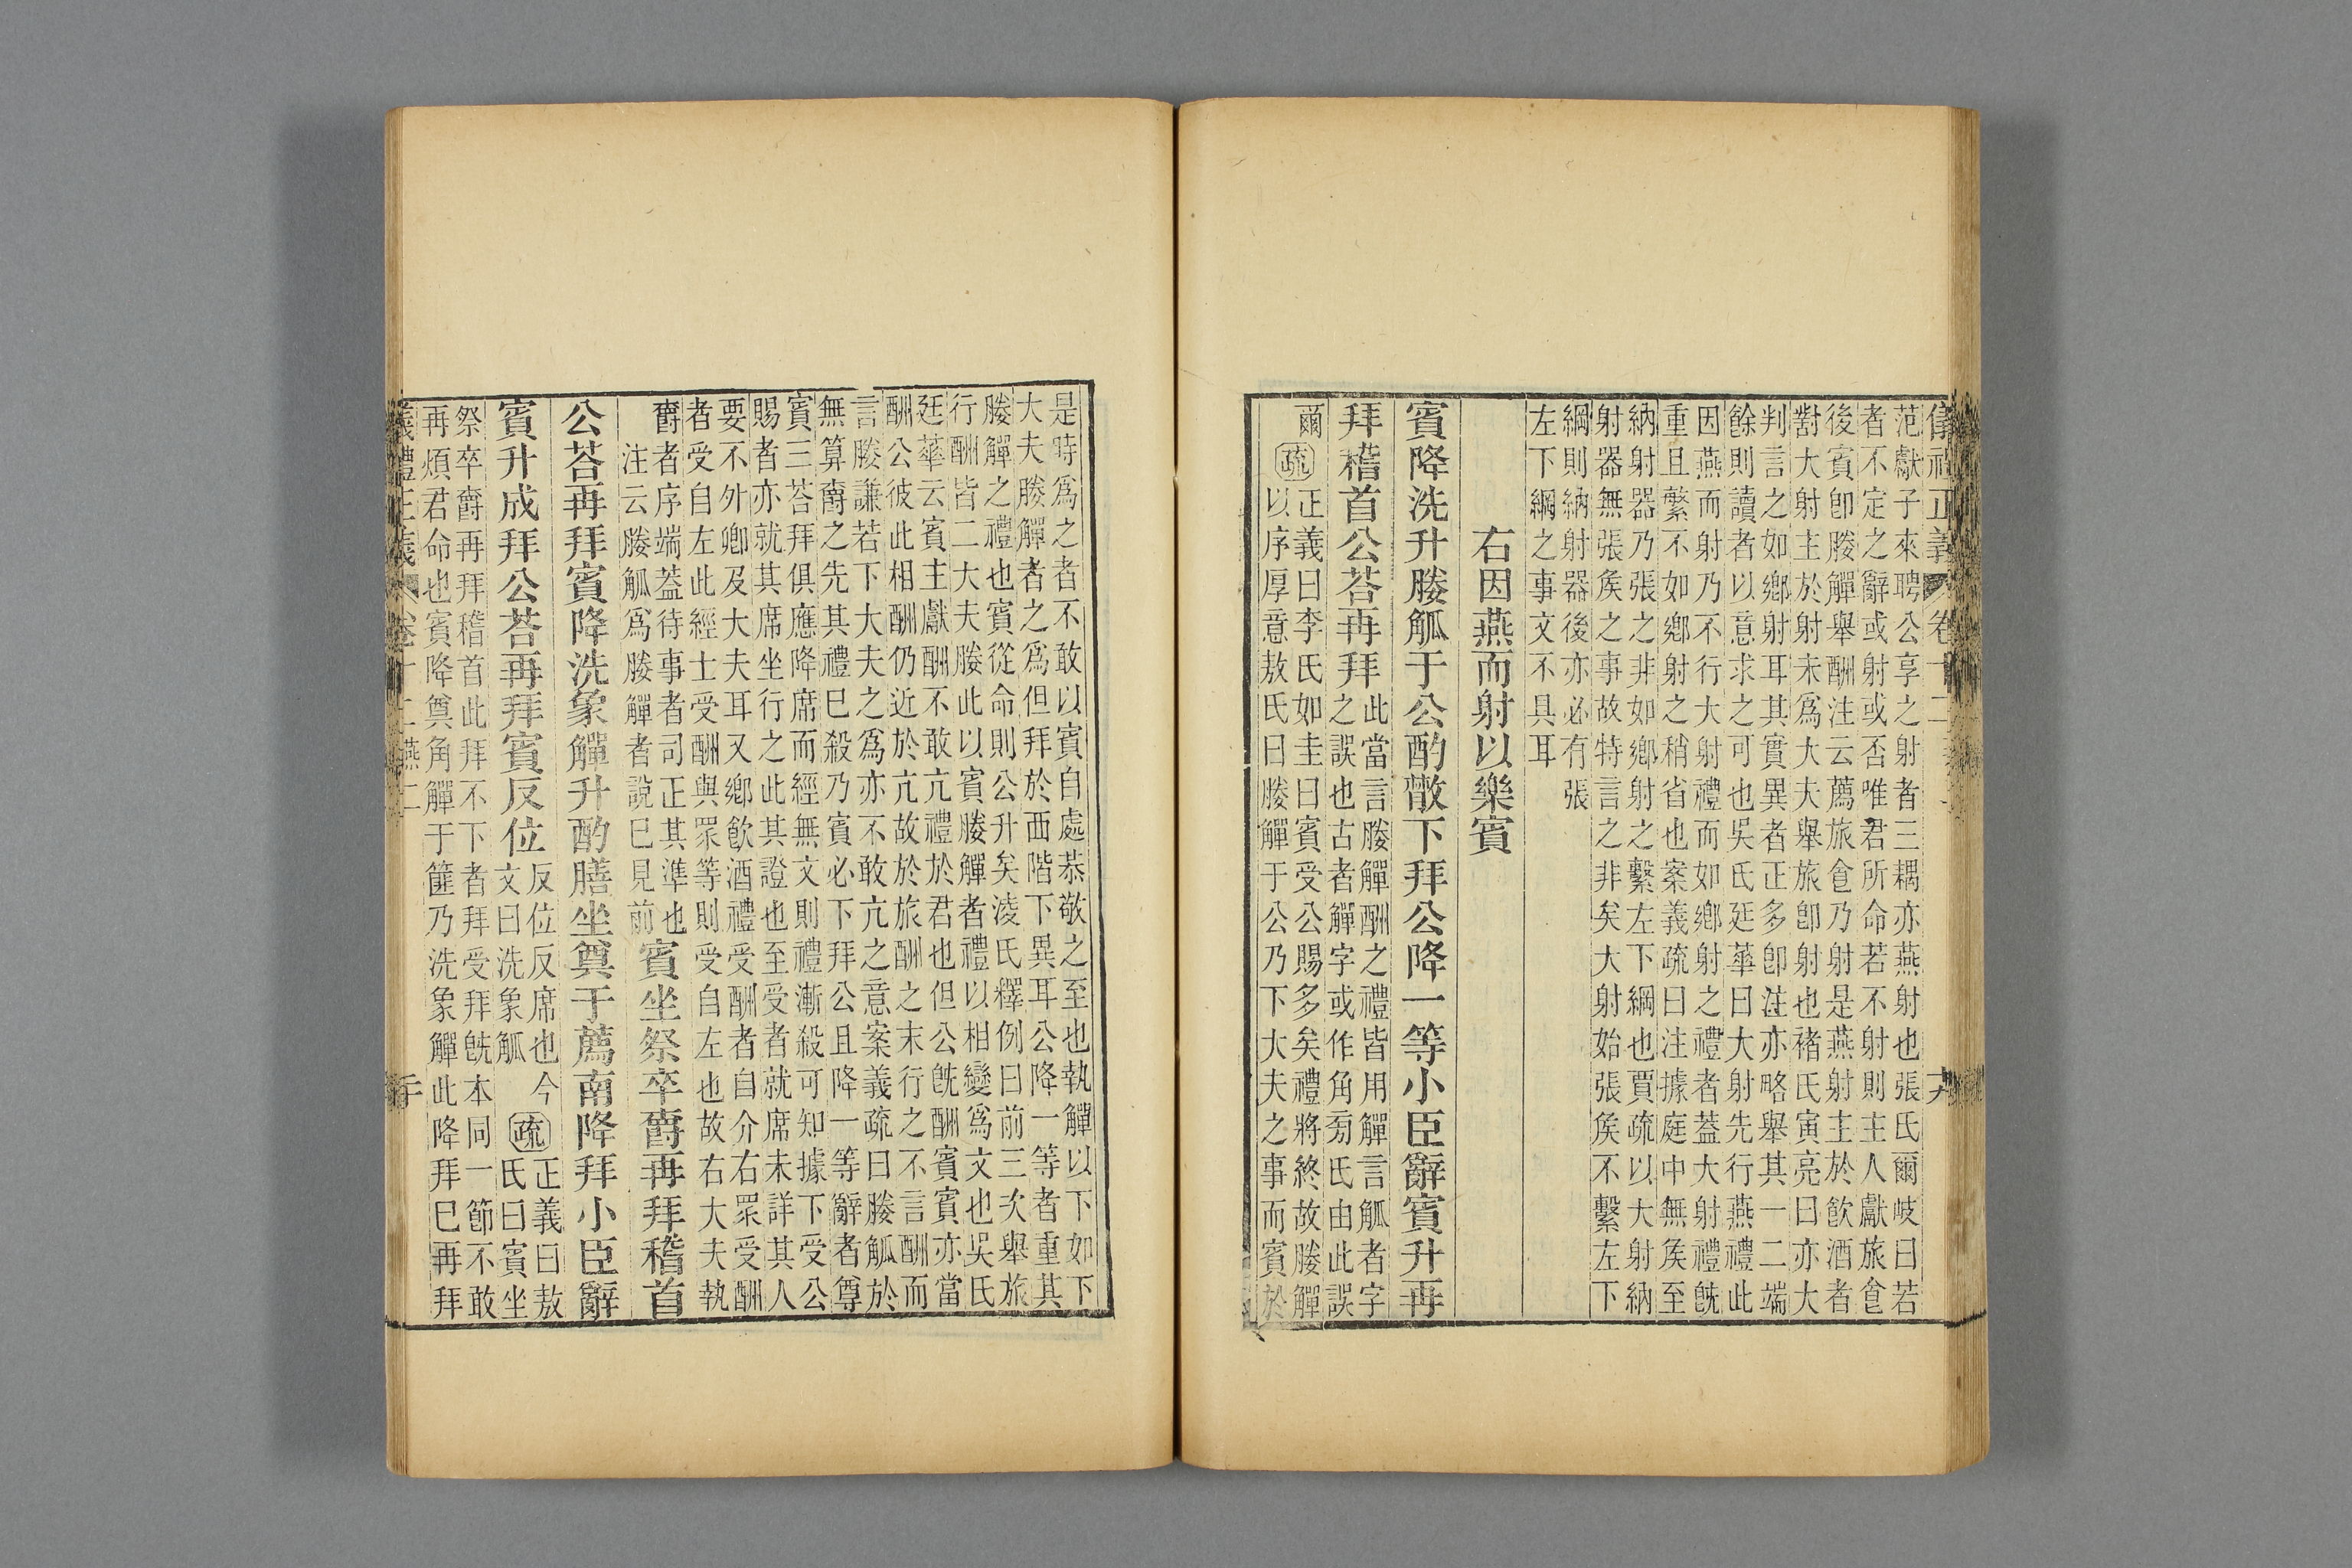 儀禮正義 卷十二 十九
范獻子來聘公享之射者三耦亦燕射也張氏爾岐曰若
者不定之辭或射或否唯君所命若不射則主人獻旅食
後賓卽媵觶舉酬注云薦旅食乃射是燕射主於飮酒者
對大射主於射未爲大夫舉旅卽射也褚氏寅亮曰亦大
判言之如鄉射耳其實異者正多卽注亦略舉其一二端
餘則讀者以意求之可也吳氏廷華曰大射先行燕禮此
因燕而射乃不行大射禮而如鄉射之禮者蓋大射禮旣
重且繁不如鄉射之稍省也案義疏曰注據庭中無矦至
納射器乃張之非如鄉射之繫左下綱也賈疏以大射納
射器無張矦之事故特言之非矣大射始張矦不繫左下
綱則納射器後亦必有張
左下綱之事文不具耳
右因燕而射以樂賓
賓降洗升媵觚于公酌散下拜公降一等小臣辭賓升再
拜稽首公荅再拜
此當言媵觶酬之禮皆用觶言觚者字
之誤也古者觶字或作角旁氏由此誤
爾
疏
正義曰李氏如圭曰賓受公賜多矣禮將終故媵觶
以序厚意敖氏曰媵觶于公乃下大夫之事而賓於
是時爲之者不敢以賓自處恭敬之至也執觶以下如下
大夫媵觶者之爲但拜於西階下異耳公降一等者重其
媵觶之禮也賓從命則公升矣淩氏釋例曰前三次舉旅
行酬皆二大夫媵此以賓媵觶者禮以相變爲文也吳氏
廷華云賓主獻酬不敢亢禮於君也但公旣酬賓賓亦當
酬公彼此相酬仍近於亢故於旅酬之末行之不言酬而
言媵謙若下大夫之爲亦不敢亢之意案義疏曰媵觚於
無算爵之先其禮巳殺乃賓必下拜公且降一等辭者尊
賓三荅拜俱應降席而經無文則禮漸殺可知據下受公
賜者亦就其席坐行之此其證也至受者就席未詳其人
要不外卿及大夫耳又鄉飮酒禮受酬者自介右眾受酬
者受自左此經士受酬與眾等則受自左也故右大夫執
爵者序端葢待事者司正其準也
注云媵觚爲媵觶者說巳見前
賓坐祭卒爵再拜稽首
公荅再拜賓降洗象觶升酌膳坐奠于薦南降拜小臣辭
賓升成拜公荅再拜賓反位
反位反席也今
文曰洗象觚
疏
正義曰敖
氏曰賓坐
祭卒爵再拜稽首此拜不下者拜受拜旣本同一節不敢
再煩君命也賓降奠角觶于篚乃洗象觶此降拜巳再拜
儀禮正義 卷十二 燕二 二十